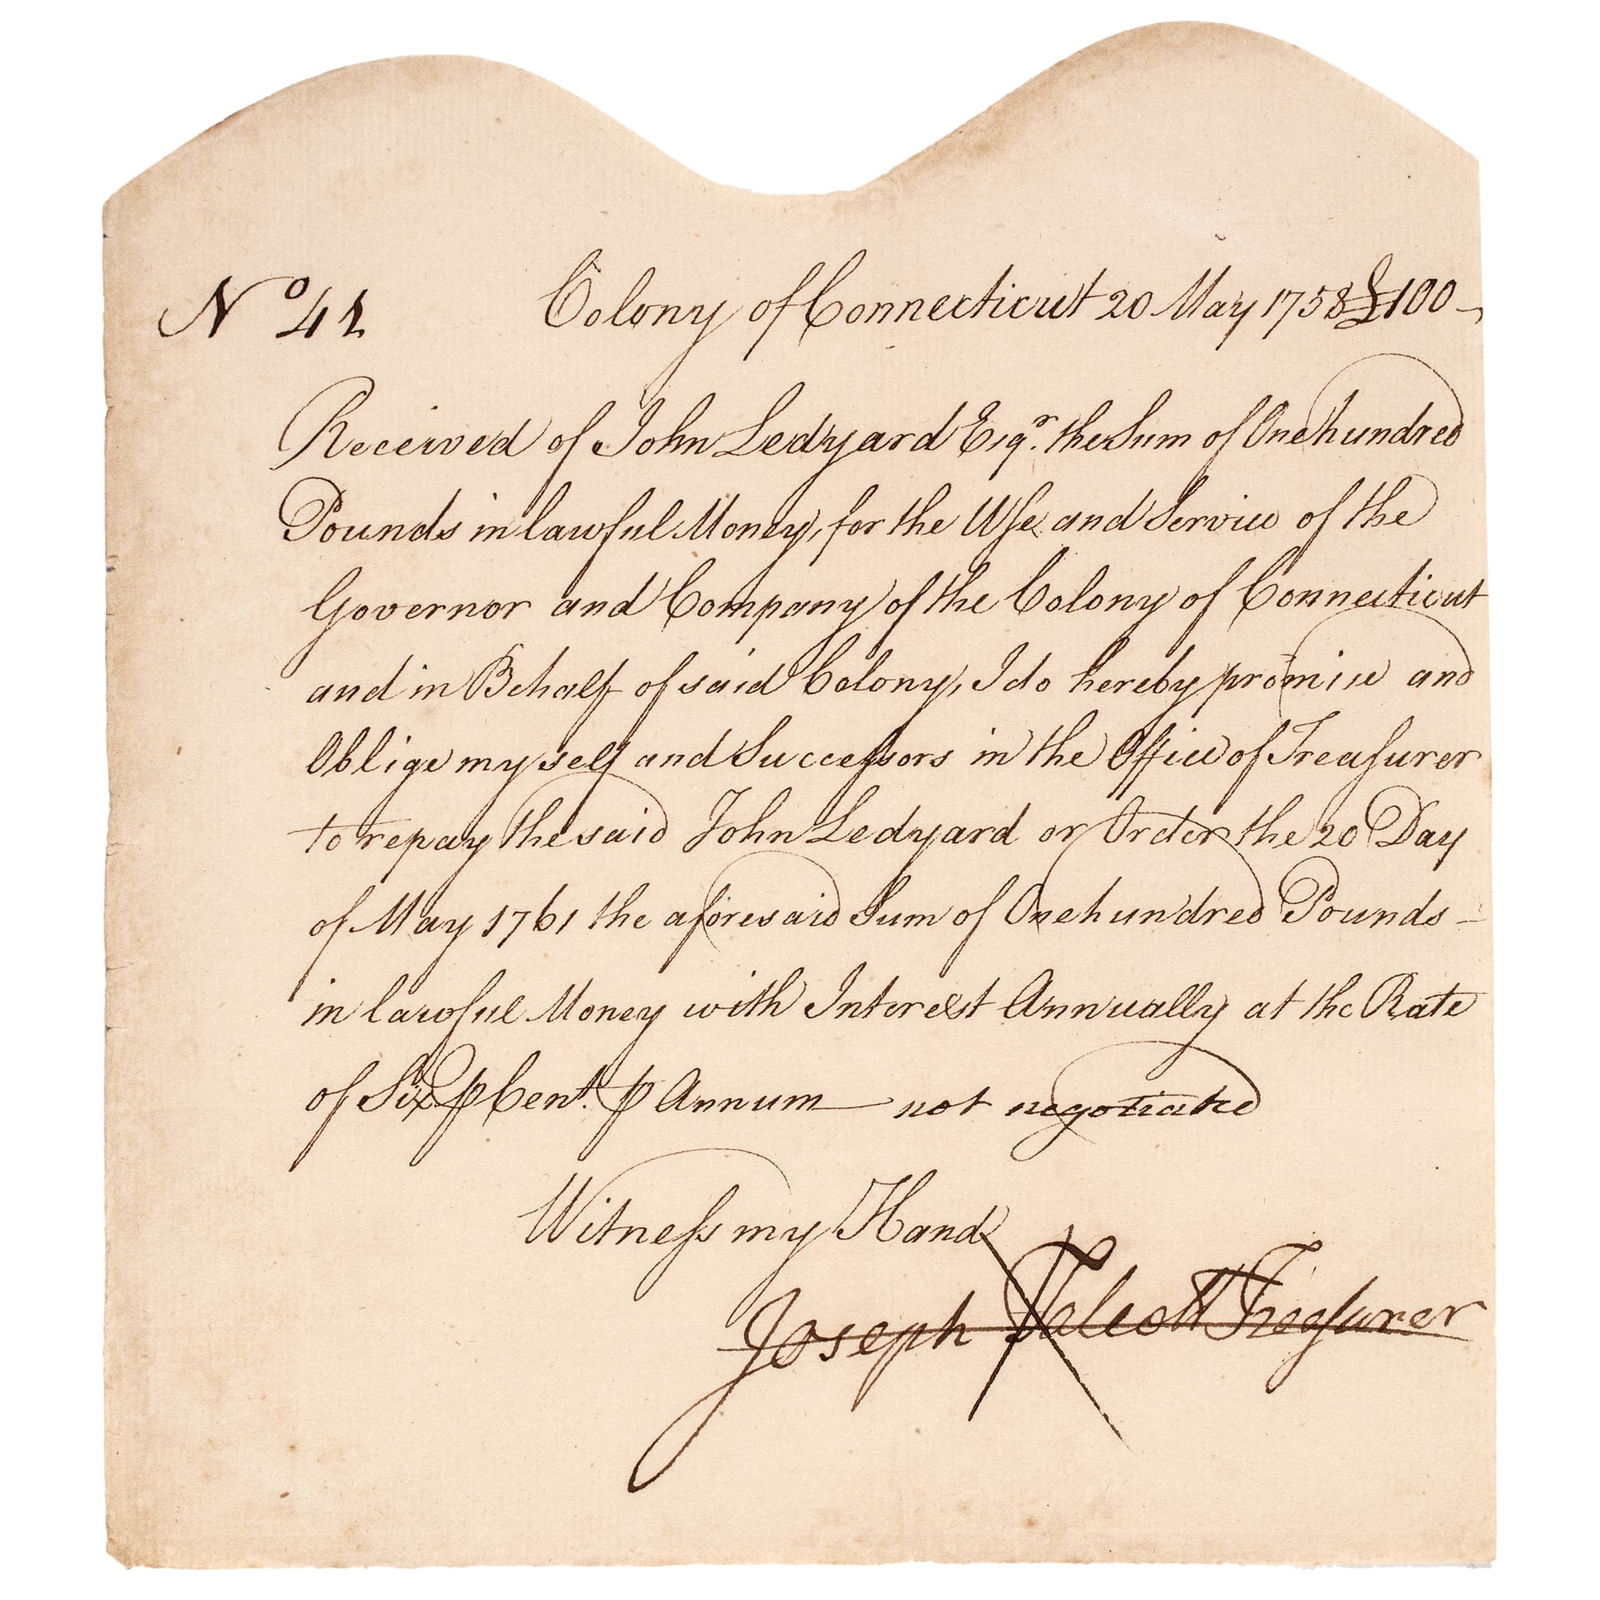 No 41 Colony of Connecticut 20 May 1758 £100
Received of John Ledyard Esqr. the Sum of One hundred
Pounds in lawful Money, for the Use and Service of the
Governor and Company of the Colony of Connecticut
and in Behalf of said Colony, I do hereby promise and
Oblige my self and Successors in the Office of Treasurer
to repay the said John Ledyard or Order the 20 Day
of May 1761 the aforesaid Sum of One hundred Pounds
in lawful Money with Interest Annually at the Rate
of Six ⅌ Cent. ⅌ Annum not negotiated
Witness my Hand
Joseph Talcott Treasurer